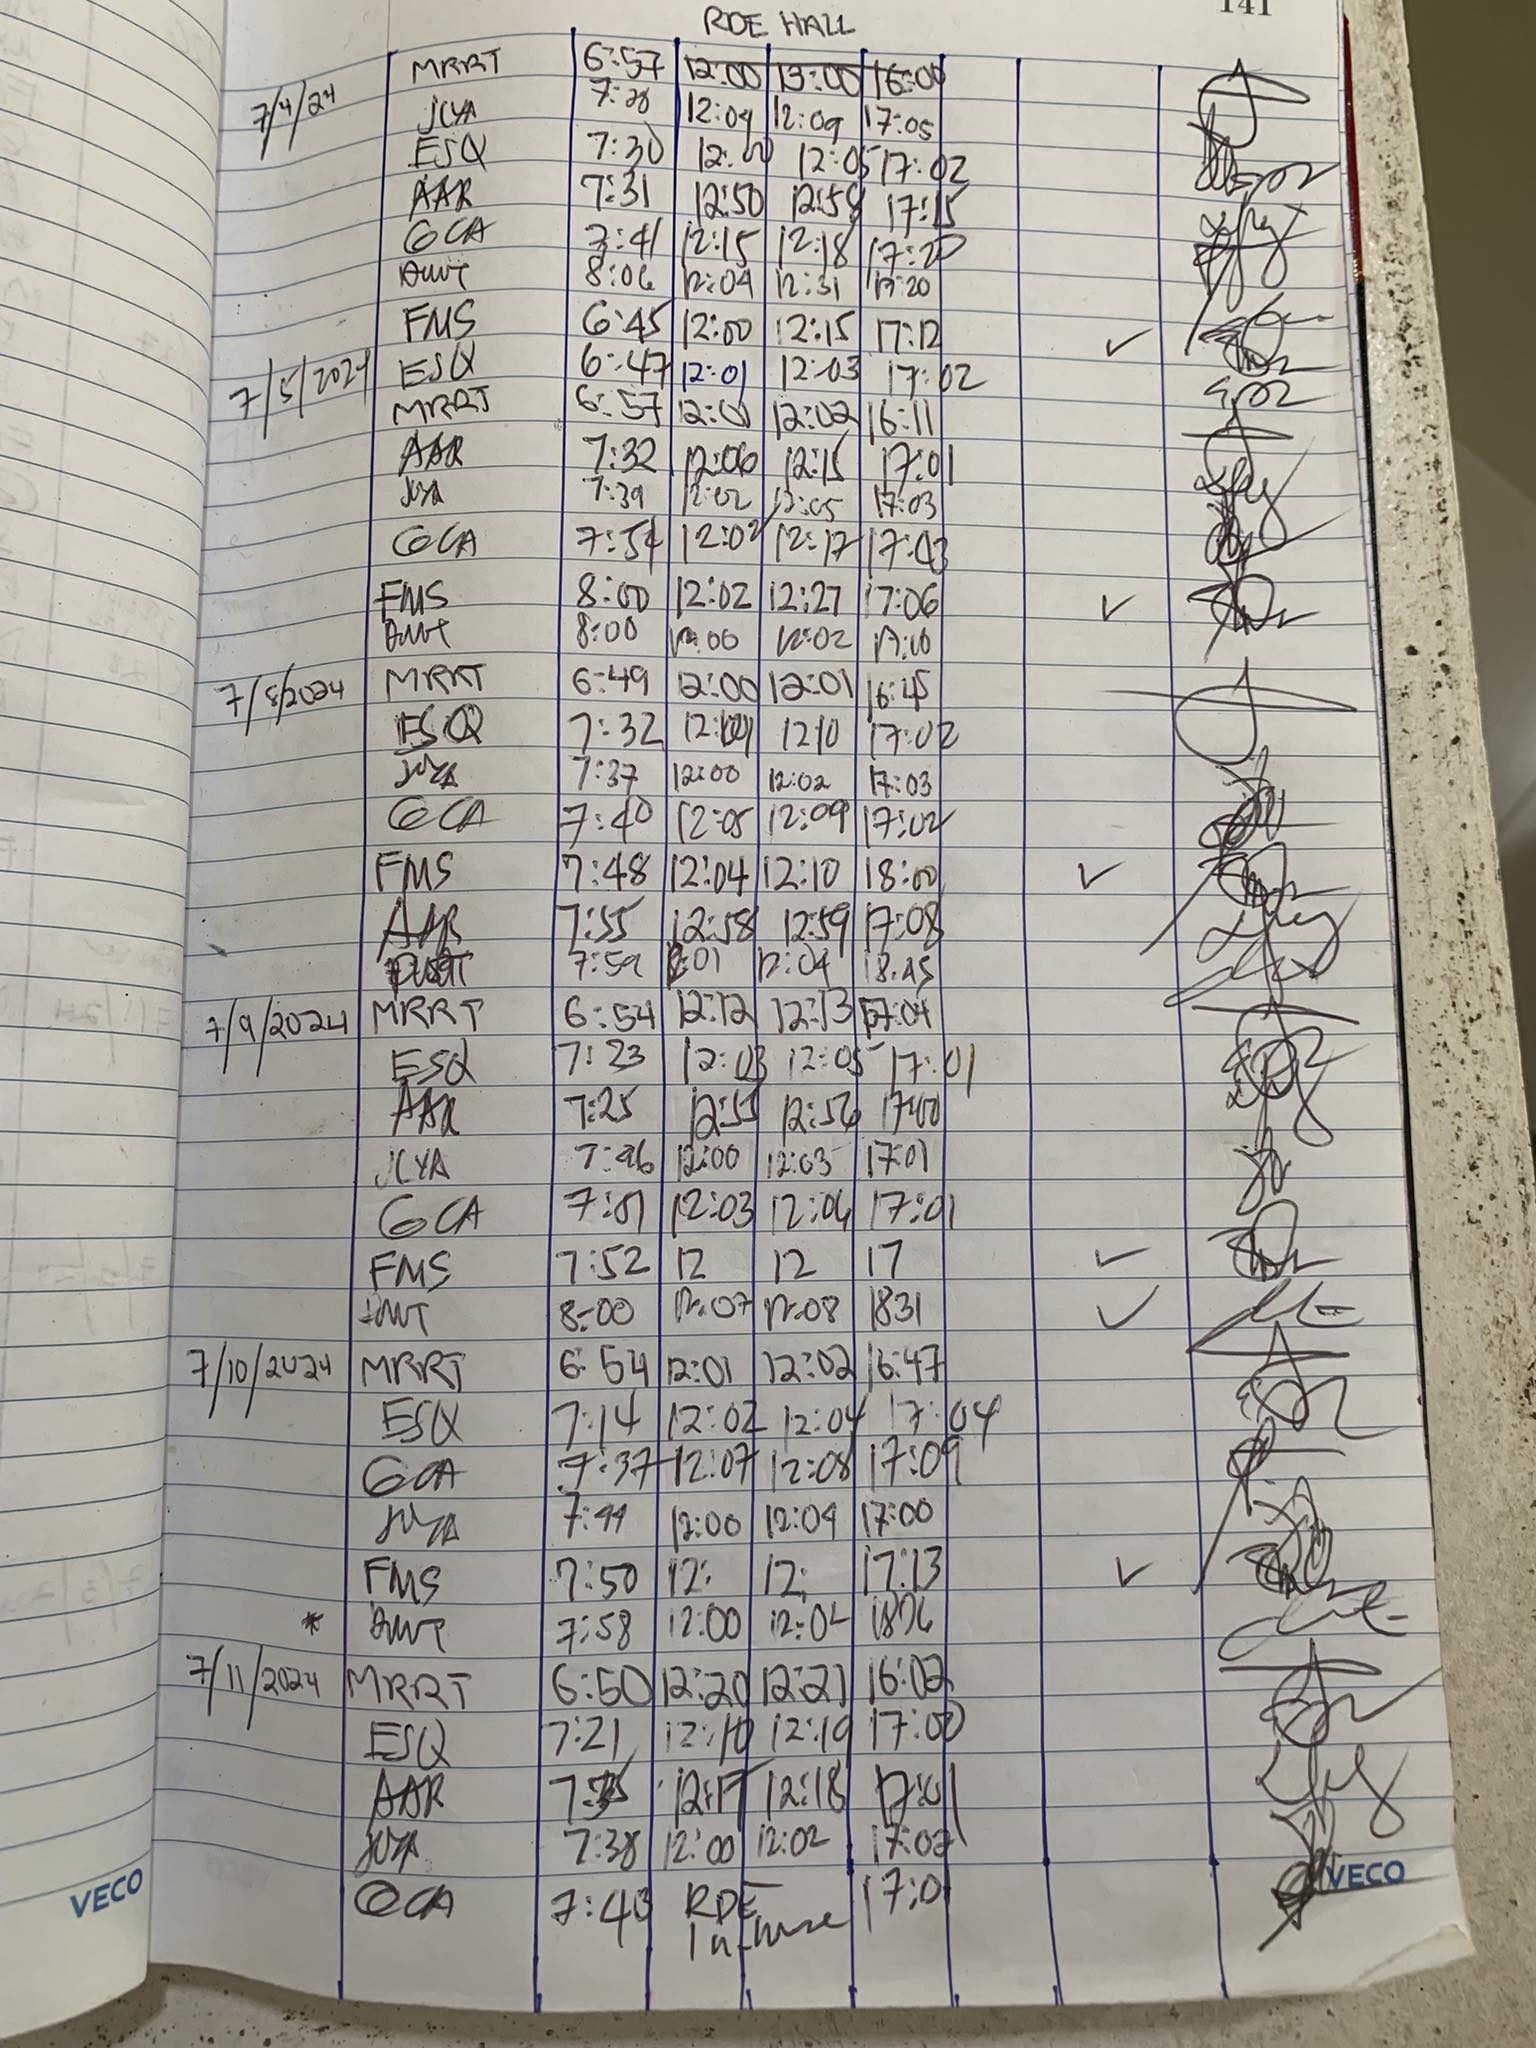 141
RDE HALL
MRRT 6:57 12:00 13:00 16:00
7/4/24 JCYA 7:28 12:09 12:09 17:05
ESQ 7:30 12:00 12:05 17:02
AAR 7:31 12:50 12:58 17:15
GCA 7:41 12:15 12:18 17:20
8:06 12:04 12:31 17:20
FMS 6:45 12:00 12:15 17:12 ✓
7/5/2024 ESQ 6:47 12:01 12:03 17:02
MRRT 6:57 12:01 12:02 16:11
AAR 7:32 12:06 12:15 17:01
JCYA 7:39 12:02 12:05 17:03
GCA 7:54 12:02 12:17 17:43
FMS 8:00 12:02 12:27 17:06 ✓
8:00 12:00 12:02 17:10
7/8/2024 MRRT 6:49 12:00 12:01 16:45
ESQ 7:32 1210 17:02
JCYA 7:37 12:00 12:02 17:03
GCA 7:40 12:05 12:09 17:02
FMS 7:48 12:04 12:10 18:00 ✓
AAR 7:55 12:58 12:59 17:08
7:59 12:01 12:04 18:45
7/9/2024 MRRT 6:54 12:12 12:13 17:04
ESQ 7:23 12:03 12:05 17:01
AAR 7:25 12:55 12:56 17:00
JCYA 7:46 12:00 12:03 17:01
GCA 12:03 12:04 17:01
FMS 7:52 12 12 17 ✓
8:00 12:07 12:08 1831 ✓
7/10/2024 MRRT 6:54 12:01 12:02 16:47
ESQ 7:14 12:02 12:04 17:04
GCA 7:37 12:07 12:08 17:09
JCYA 7:44 12:00 12:04 17:00
FMS 7:50 12: 12: 17:13 ✓
* 7:58 12:00 12:02
7/11/2024 MRRT 6:50 12:20 12:21 16:02
ESQ 7:21 12:10 12:19 17:00
AAR 7:35 12:17 12:18 17:01
JCYA 7:38 12:00 12:02 17:02
GCA 7:43 RDE 17:01
In-house
VECO VECO